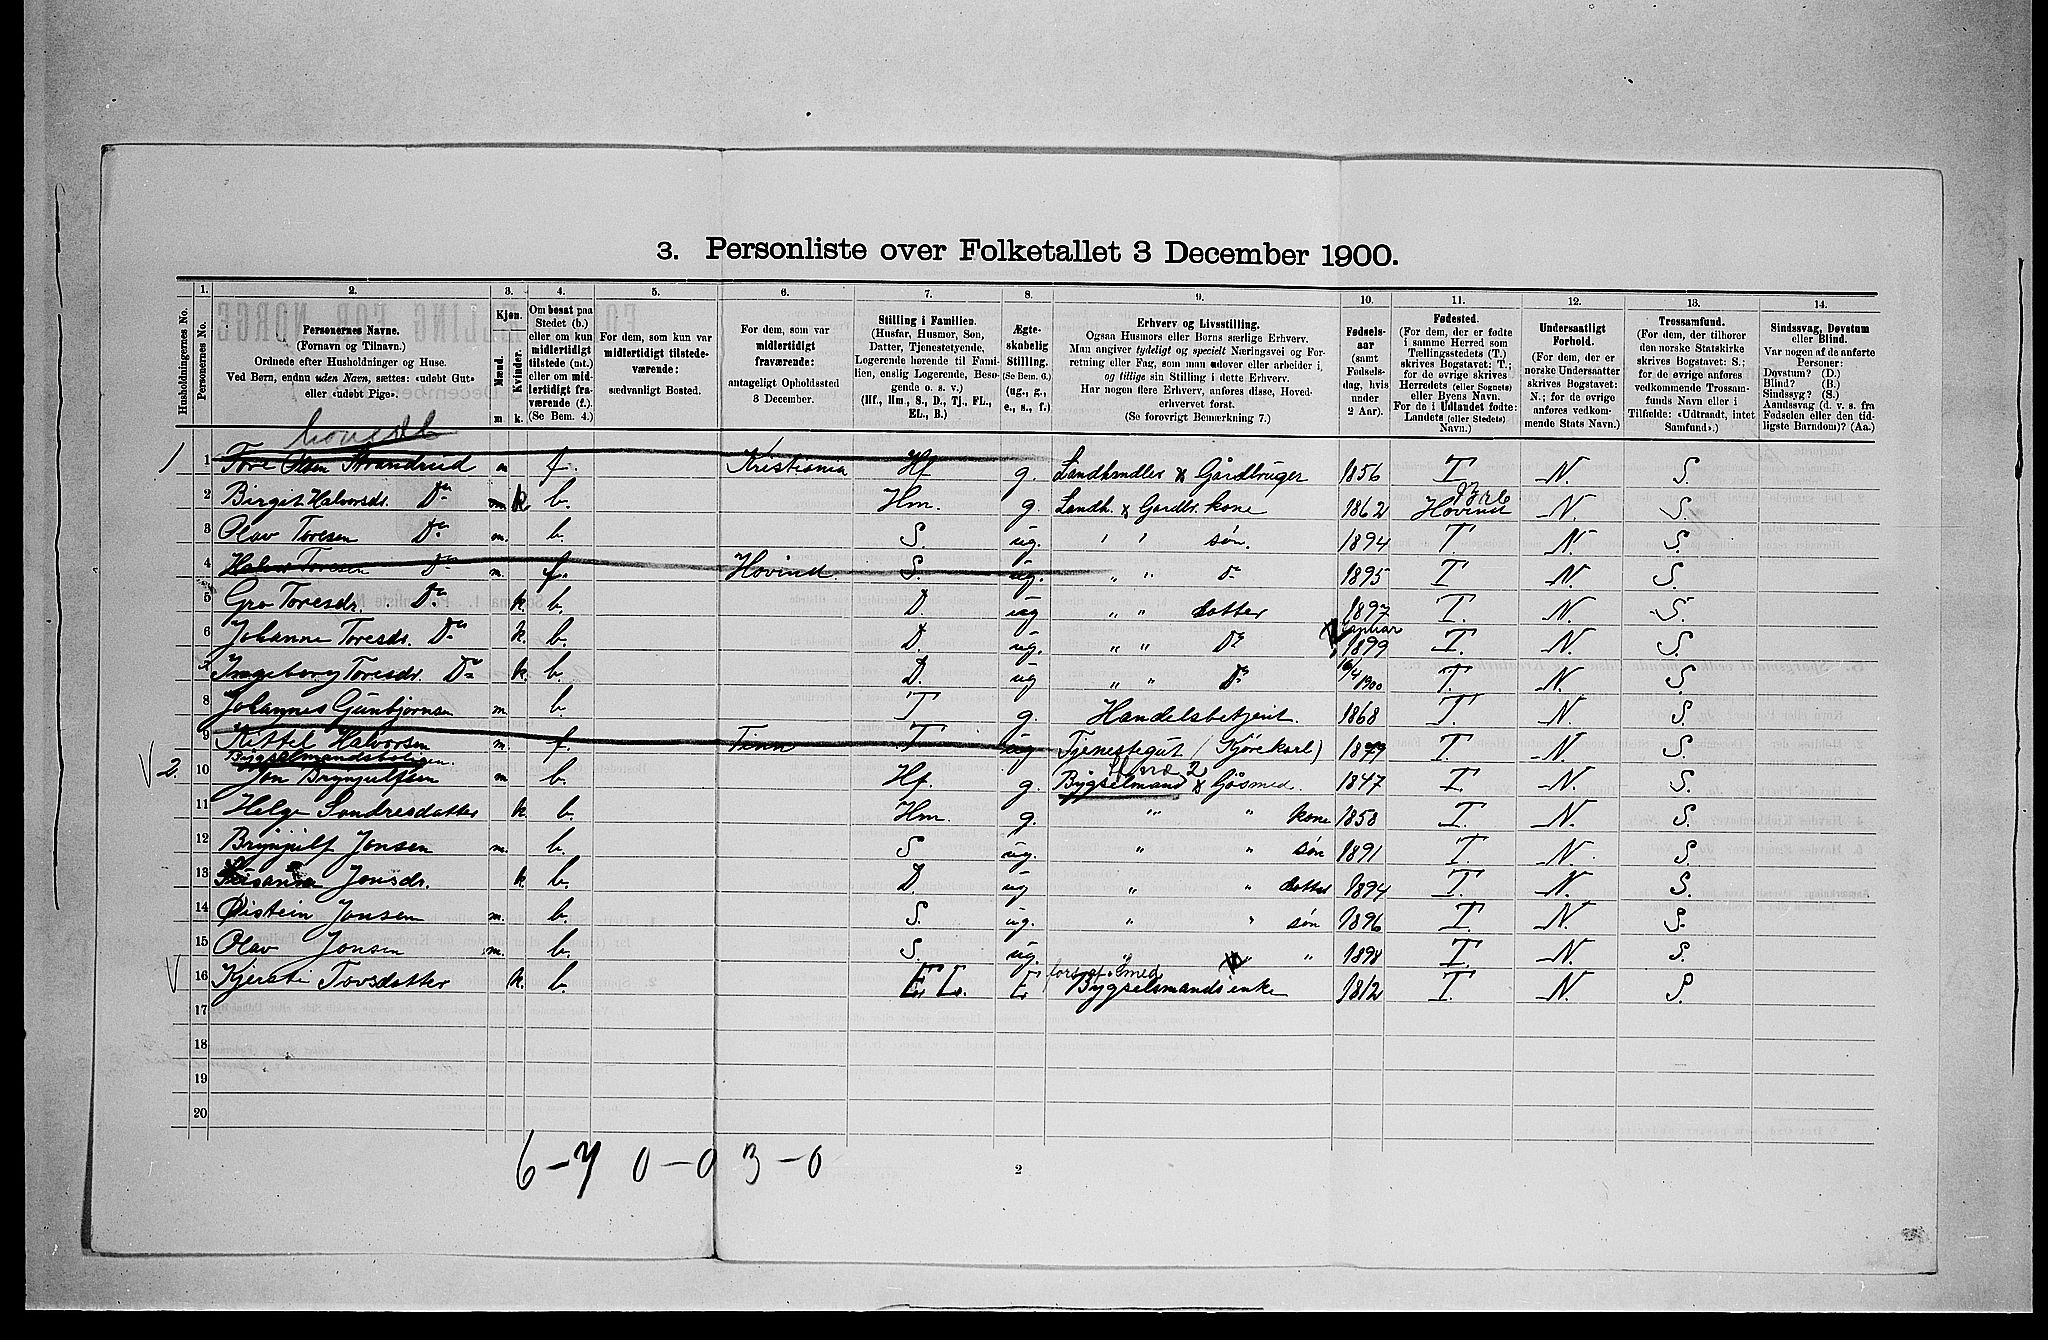 3. Personliste over Folketallet 3 December 1900.
1. 2. 3. 4. 5. 6. 7. 8. 9. 10. 11. 12. 13. 14.
Husholdningernes No.
Personernes No.
Personernes Navne.
(Fornavn og Tilnavn.)
Ordnede efter Husholdninger og Huse.
Ved Børn, endnu uden Navn, sættes: «udøbt Gut»
eller «udøbt Pige».
Kjøn.
Mænd. Kvinder.
m. k.
Om bosat paa
Stedet (b.)
eller om kun
midlertidigt
tilstede (mt.)
eller om mid-
lertidigt fra-
værende (f.)
(Se Bem. 4.)
For dem, som kun var
midlertidigt tilstede-
værende:
sædvanligt Bosted.
For dem, som var
midlertidigt
fraværende:
antageligt Opholdssted
3 December.
Stilling i Familien.
(Husfar, Husmor, Søn,
Datter, Tjenestetyende,
Logerende hørende til Fami-
lien, enslig Logerende, Besø-
gende o. s. v.)
(Hf., Hm., S., D., Tj., FL.,
EL., B.)
Ægte-
skabelig
Stilling.
(Se Bem. 6.)
(ug., g.,
e., s., f.)
Erhverv og Livsstilling.
Ogsaa Husmors eller Børns særlige Erhverv.
Man angiver tydeligt og specielt Næringsvei og For-
retning eller Fag, som man udøver eller arbeider i,
og tillige sin Stilling i dette Erhverv.
Har nogen flere Erhverv, anføres disse, Hoved-
erhvervet først.
(Se forøvrigt Bemerkning 7.)
Fødsels-
aar
(samt
Fødsels-
dag, hvis
under
2 Aar).
Fødested.
(For dem, der er fødte
i samme Herred som
Tællingsstedets (T.)
skrives Bogstavet: T.;
for de øvrige skrives
Herredets (eller Sognets)
eller Byens Navn.
For de i Udlandet fødte:
Landets (eller Stedets)
Navn.)
Undersaatligt
Forhold.
(For dem, der er
norske Undersaatter
skrives Bogstavet:
N.; for de øvrige
anføres vedkom-
mende Stats Navn.)
Trossamfund.
(For dem, der tilhører
den norske Statskirke
skrives Bogstavet: S.;
for de øvrige anføres
vedkommende Trossam-
funds Navn eller i
Tilfælde: «Udtraadt, intet
Samfund».)
Sindssvag, Døvstum
eller Blind.
Var nogen af de anførte
Personer:
Døvstum? (D.)
Blind? (B.)
Sindssyg? (S.)
Aandssvag (d. v. s. fra
Fødselen eller den tid-
ligste Barndom)? (Aa.)
1 1 Tore Olsen Strandrud m f. Kristiania Hf g. Landhandler & Gårdbruger 1856 T. N. S.
2 Birgit Halvorsdr. Do k b. Hm. g. Landh. & Gardbr. kone 1862 Hovind N. S.
3 Olav Toresen Do m. b. S. ug. " " søn. 1894 T. N. S.
4 Halvor Toresen Do m. f. Hovind. S. ug. " " Do 1895 T. N. S.
5 Gro Toresdr. Do k. b. D. ug " " datter 1897 T. N. S.
6 Johanne Toresdr. Do k. b. D. ug. " " Do januar 1899 T. N. S.
7 Ingeborg Toresdr. Do k. b. D. ug " " Do 16/4 1900 T. N. S.
8 Johannes Gunbjørnsen m. b. T g. Handelsbetjent. 1868 T. N. S.
9 Kittel Halvorsen m. f. Tinn T ug Tjenestegut (Kjørekarl) 1879 T. N. S.
Bygselmandsboligen.
2. 10 Jon Brynjulfsen m b. Hf. g. Bygselmand & Gåsmed. 1847 T. N. S.
11 Helge Sondresdatter k b. Hm. g. " " kone 1858 T. N. S.
12 Brynjulf Jonsen m. b. S ug. " " søn 1891 T. N. S.
13 Jonsdr. k. b. D. ug " " datter 1894 T. N. S.
14 Øistein Jonsen m. b. S. ug. " " søn 1896 T. N. S.
15 Olav Jonsen m. b. S. ug. " " " 1898 T. N. S.
16 Kjersti Tovsdatter k. b. EL. E Bygselsmands enke 1812 T. N. S.
17
18
19
20
6-7 0-0 3-0
2